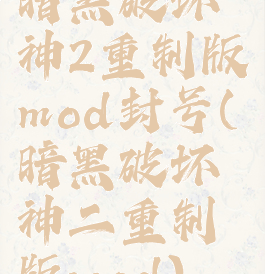 暗黑破坏
神2重制版
mod封号(
暗黑破坏
神二重制
版mod)